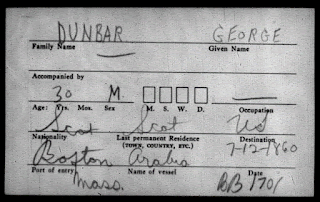 DUNBAR GEORGE
Family Name Given Name
Accompanied by
30 M.
Age: Yrs. Mos. Sex M. S. W. D. Occupation
Scot Scot US
Nationality Last permanent Residence Destination
(TOWN, COUNTRY, ETC.)
Boston Arabia 7-12-1860
Port of entry Name of vessel Date
Mass. BB 170